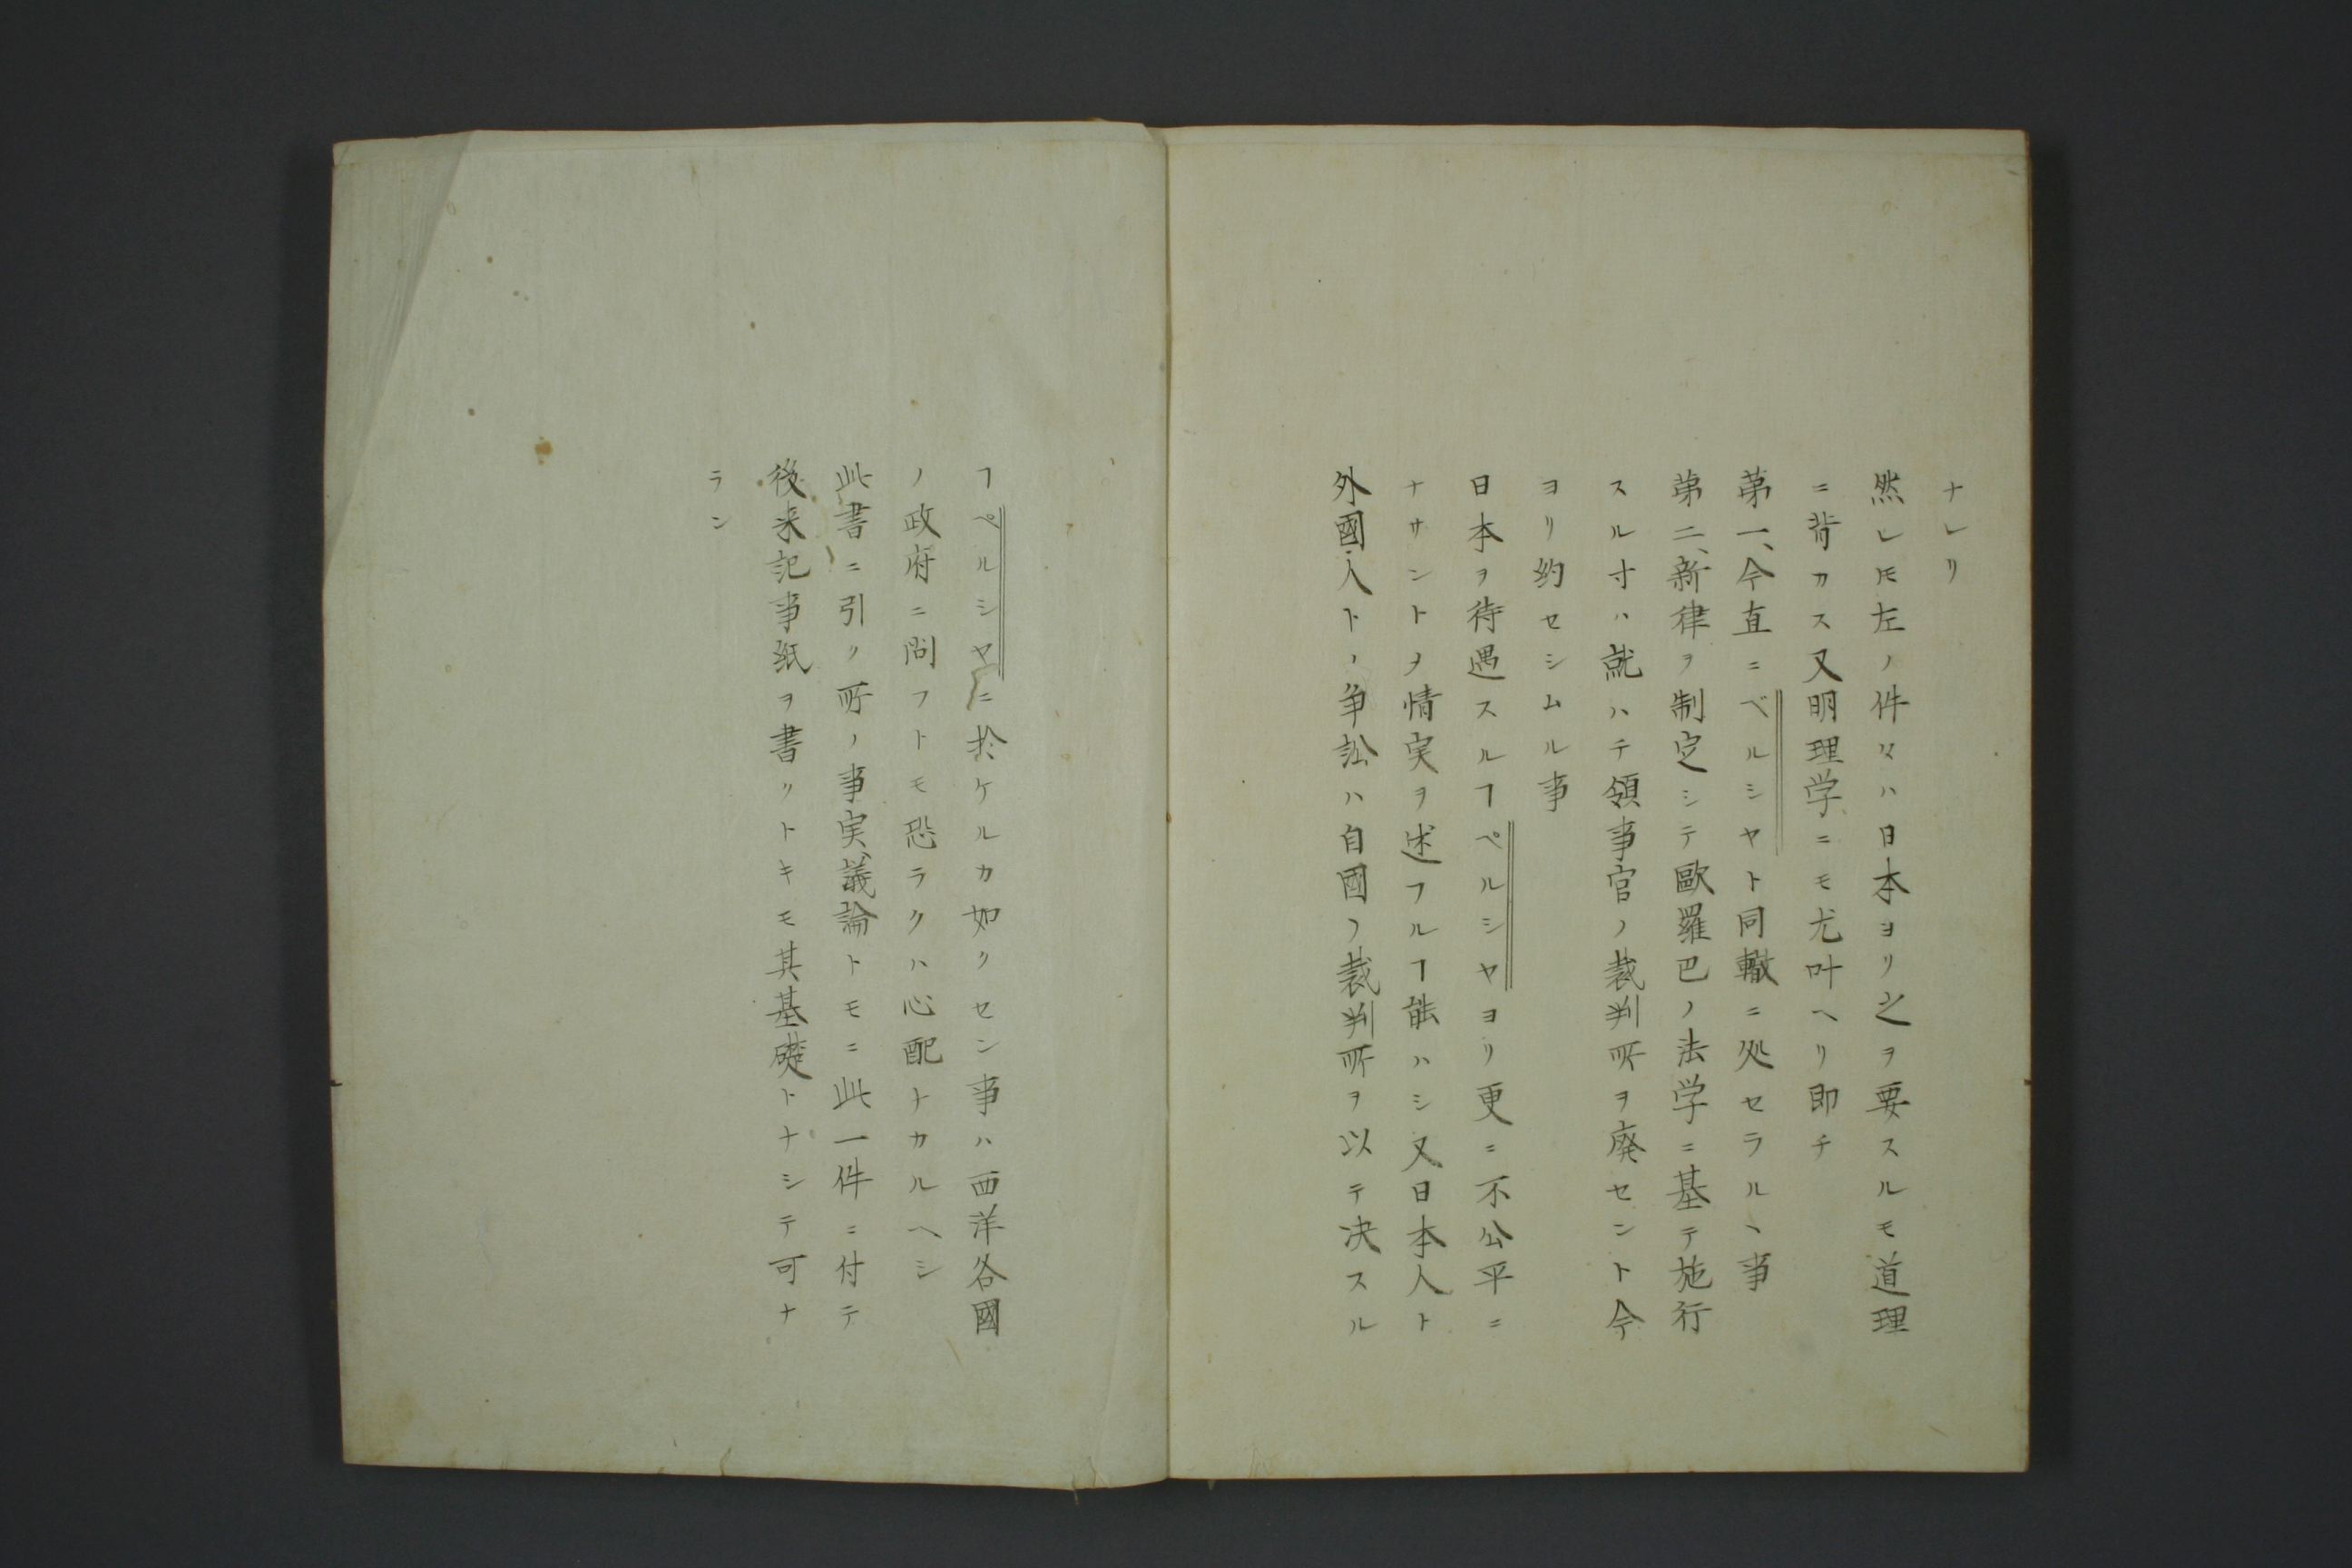 ナレリ
然レ𪜈左ノ件々ハ日本ヨリ之ヲ要スルモ道理
ニ背カス又明理学ニモ尤叶ヘリ即チ
第一、今直ニベルシヤト同轍ニ処セラルヽ事
第二、新律ヲ制定シテ歐羅巴ノ法学ニ基テ施行
スル寸ハ就ハテ領事官ノ裁判所ヲ廃セント今
ヨリ約セシムル事
日本ヲ待遇スルヿペルシヤヨリ更ニ不公平ニ
ナサントヲ情実ヲ述フルヿ能ハシ又日本人ト
外國人トノ争訟ハ自國ノ裁判所ヲ以テ决スル
ヿペルシヤニ於ケルカ如クセン事ハ西洋各國
ノ政府ニ問フトモ恐ラクハ心配ナカルヘシ
此書ニ引ク所ノ事実、議論トモニ此一件ニ付テ
後来記事紙ヲ書クトキモ其基礎トナシテ可ナ
ラン